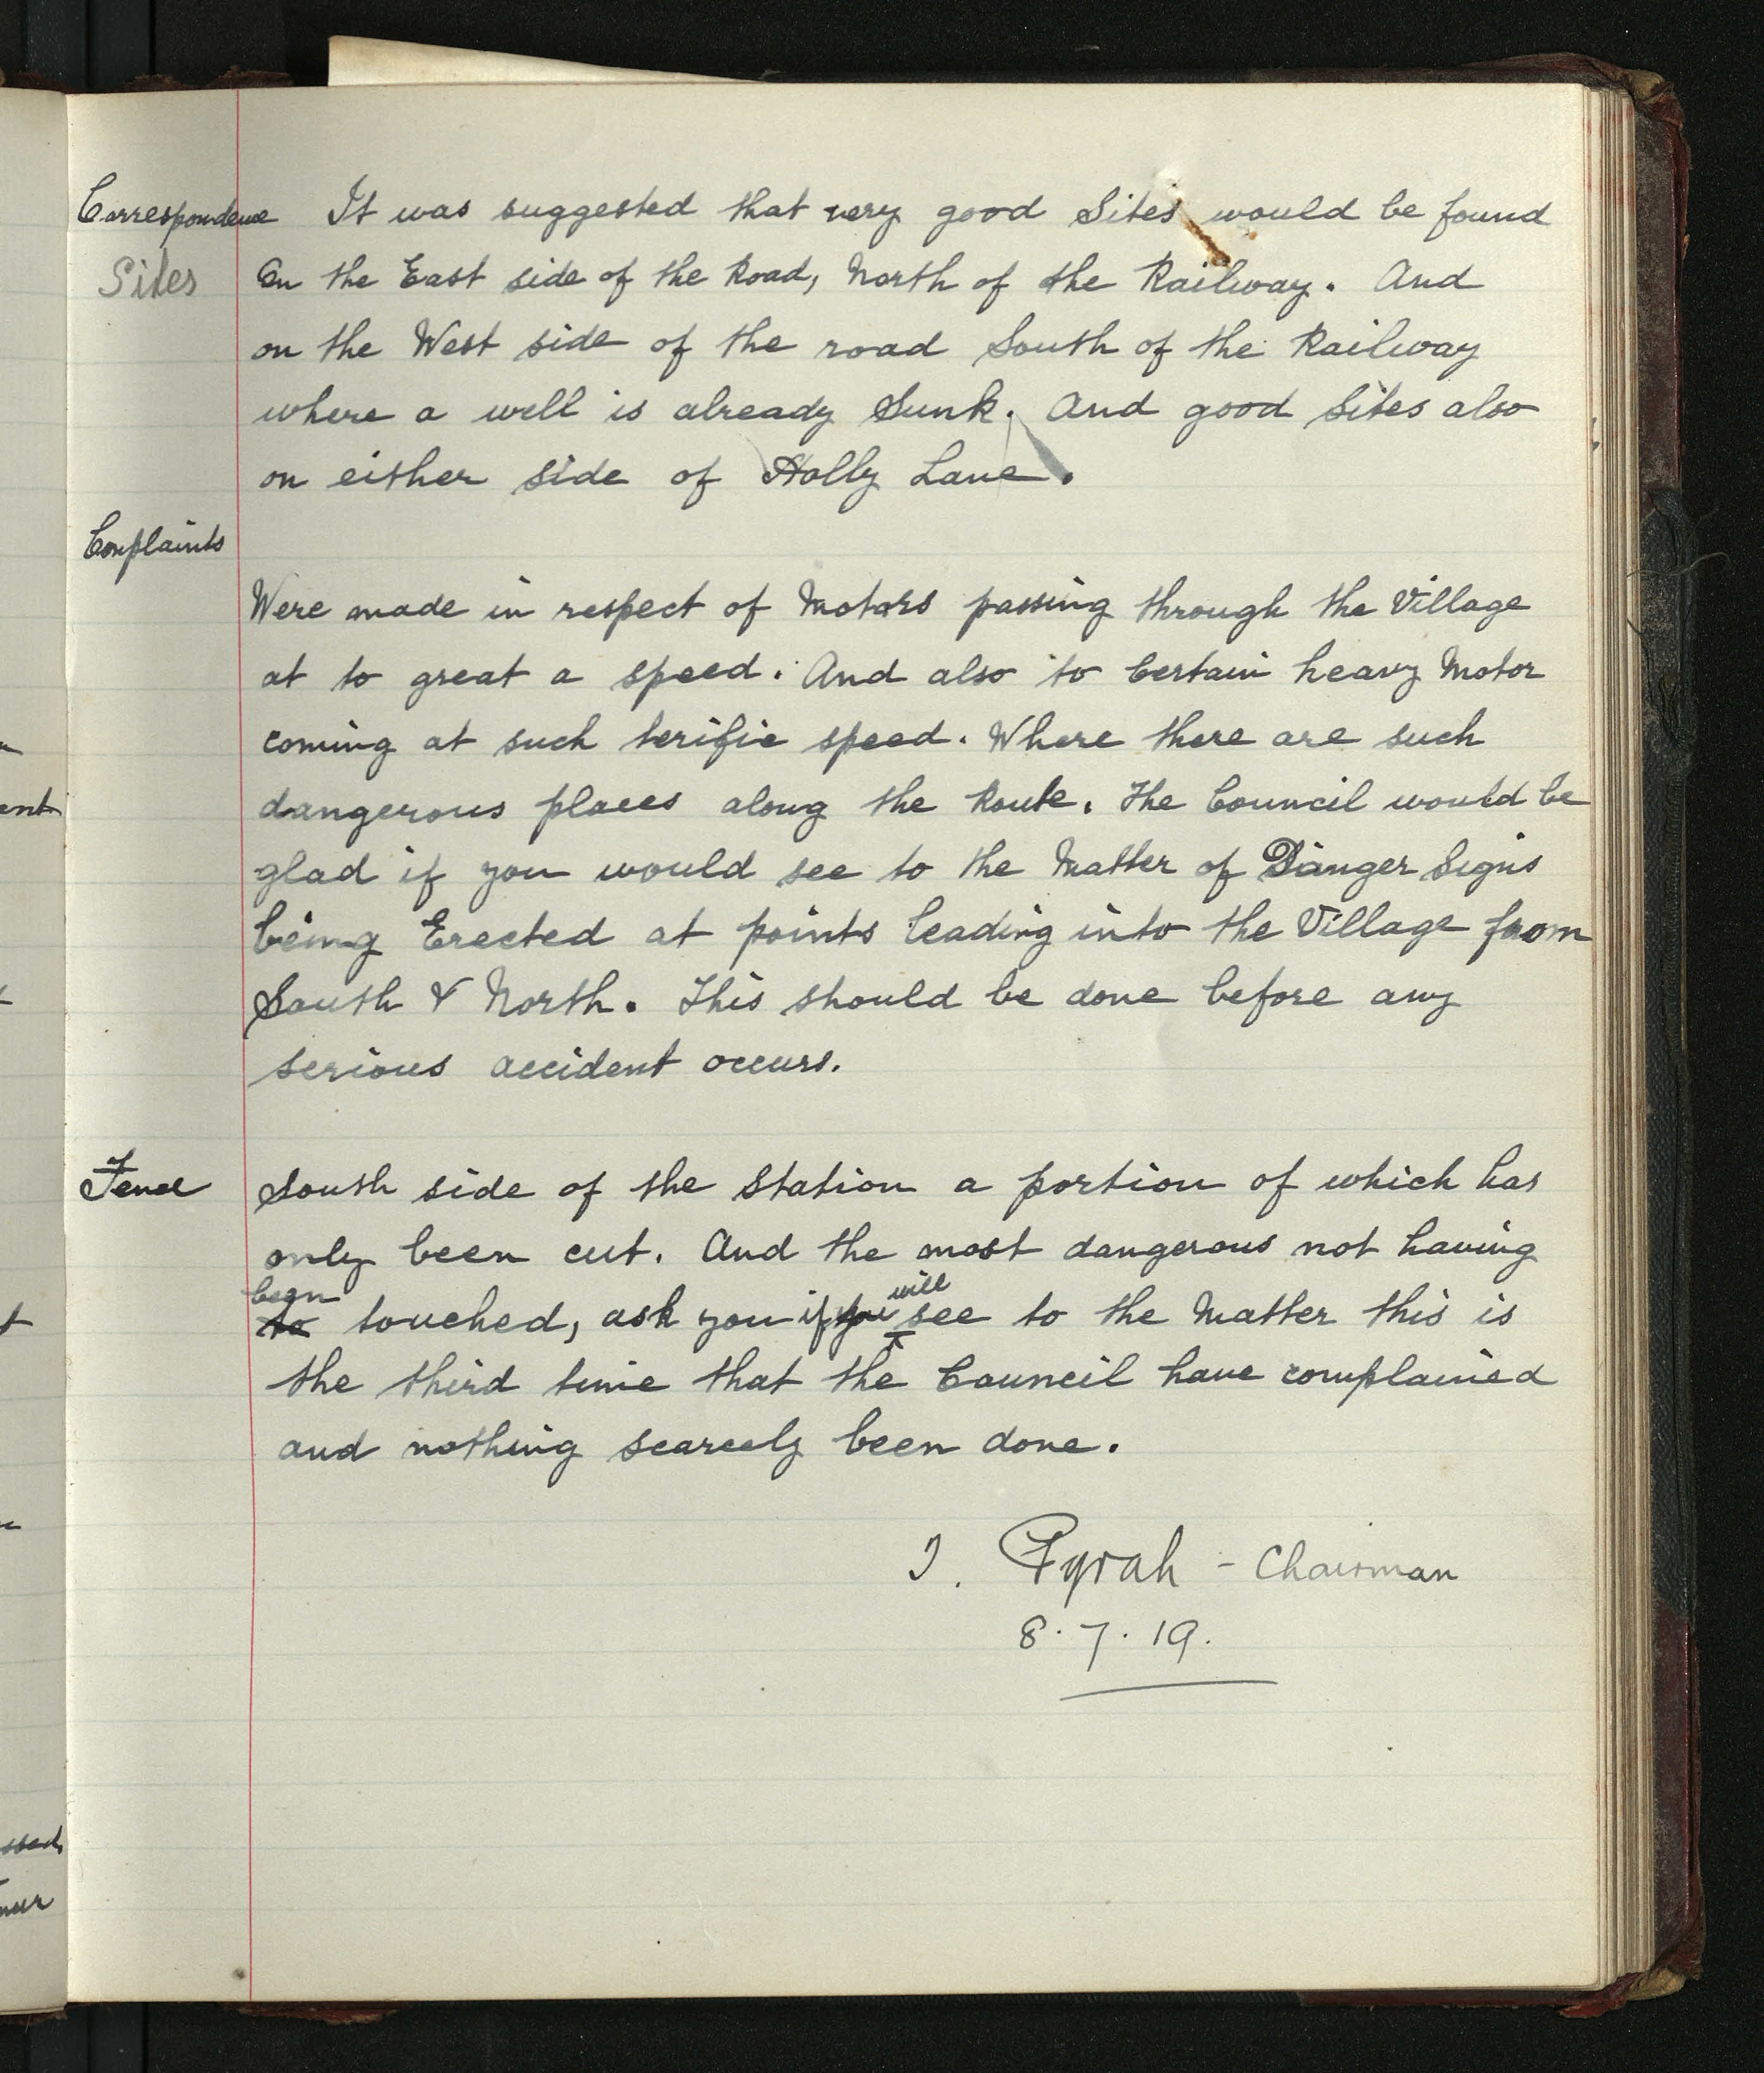 Correspondence It was suggested that very good Sites would be found
Sites On the East side of the Road, North of the Railway. And
on the West side of the road South of the Railway
where a well is already Sunk. And good Sites also
on either side of Holly Lane.
Complaints
Were made in respect of Motors passing through the Village
at to great a speed. And also to Certain heavy Motor
coming at such terific speed. Where there are such
dangerous places along the Route. The Council would be
glad if you would see to the Matter of Danger Signs
being Erected at points leading into the Village from
South & North. This should be done before any
serious accident occurs.
South side of the Station a portion of which has
only been cut. And the most dangerous not having
been touched, ask you if you will see to the Matter this is
the third time that the Council have complained
and nothing scarcely been done.
Pyrah - Chairman
8.7.19.